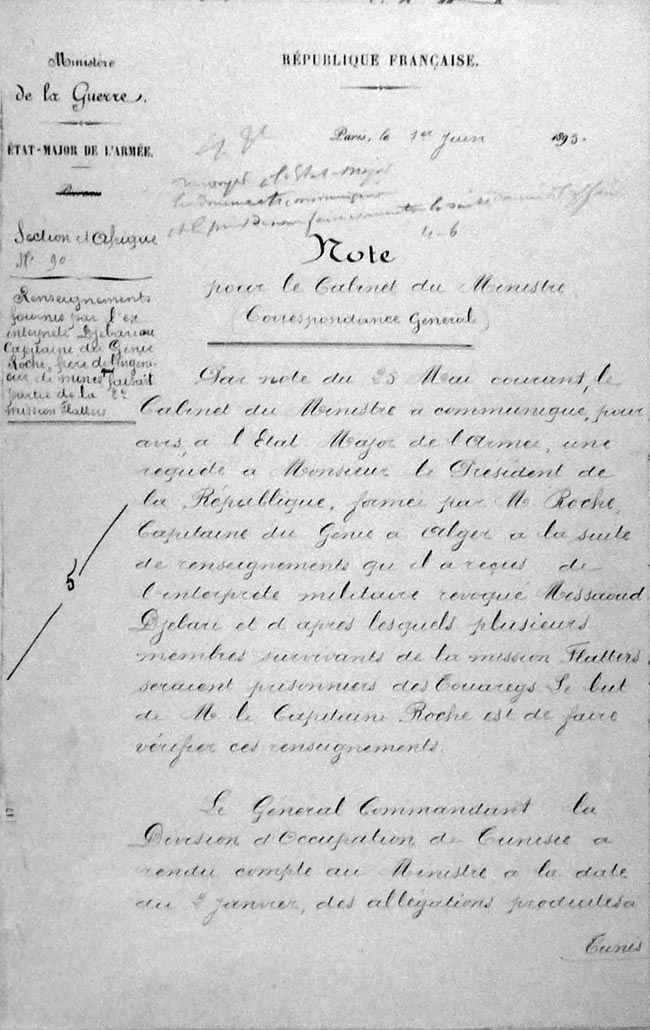 Ministère
de la Guerre.
ÉTAT-MAJOR DE L'ARMÉE.
Bureau
Section d'Afrique
N° 90
Renseignements
fournis par l'ex
interprète Djebari au
Capitaine du Génie
Roche, frère de l'ingéni-
eur des mines faisait
partie de la 2e
mission Flatters
RÉPUBLIQUE FRANÇAISE.
Paris, le 1er Juin 1893.
4-6
Note
pour le Cabinet du Ministre
(Correspondance Générale)
Par note du 25 Mai courant, le
Cabinet du Ministre a communiqué, pour
avis, à l'Etat Major de l'Armée, une
requête à Monsieur le Président de
la République, formée par M. Roche,
Capitaine du Génie à Alger à la suite
de renseignements qu'il a reçus de
l'interprète militaire révoqué Messaoud
Djebari et d'après lesquels plusieurs
membres survivants de la mission Flatters
seraient prisonniers des Touaregs. Le but
de M. le Capitaine Roche est de faire
vérifier ces renseignements.
5
Le Général Commandant la
Division d'Occupation de Tunisie a
rendu compte au Ministre, à la date
du 2 Janvier, des allégations produites à
Tunis